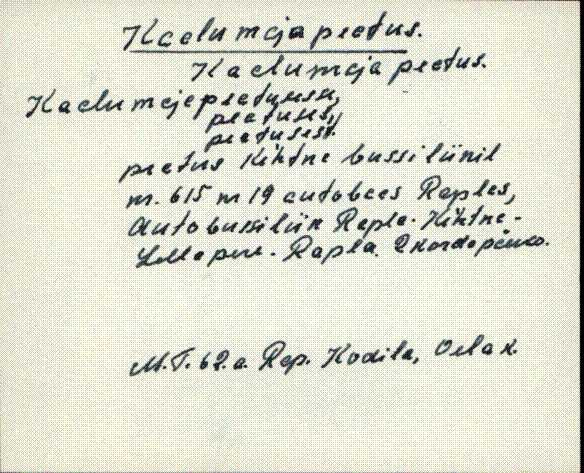 Kaelumäja peatus.
Kaelumäja peatus.
Kaelumäjapeatuisse,
peatuses,
peatusest.
peatus Kihtne bussiliinil
nr. 615 m 19 autobaas Raplas,
Autobussiliin Rapla-Kihtne-
Rapla. 2 korda päevas.
M.T. 62.a. Rap. Kodila, Oela k.